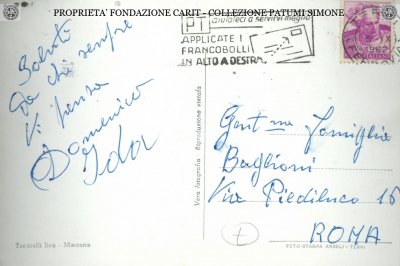 PROPRIETA' FONDAZIONE CARIT - COLLEZIONE PATUMI SIMONE
PT
aiutateci a servirvi meglio
APPLICATE I
FRANCOBOLLI
IN ALTO A DESTRA
1962
Saluti
da chi sempre
Vi pensa
Domenico
Ida
Vera fotografia - Riproduzione vietata
Gent.me Famiglia
Baglioni
Via Piediluco 16
ROMA
Mercerie
FOTO-STAMPA ANGELI - TERNI